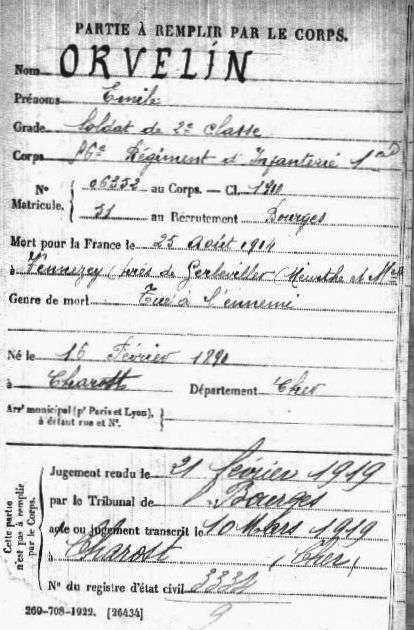 PARTIE À REMPLIR PAR LE CORPS.
Nom ORVELIN
Prénoms Emile
Grade Soldat de 2e classe
Corps Régiment d'Infanterie
No 06352 au Corps. — Cl. 1910
Matricule. 31 au Recrutement Bourges
Mort pour la France le 25 Août 1914
à Vennezey (près de Gerbeviller Meurthe et Mlle
Genre de mort Tué à l'ennemi
Né le 16 Février 1890
à Charost Département Cher
Arrt municipal (pr Paris et Lyon),
à défaut rue et No.
Cette partie
n'est pas à remplir
par le Corps.
Jugement rendu le 21 février 1919
par le Tribunal de Bourges
acte ou jugement transcrit le 10 Mars 1919
à Charost (Cher)
No du registre d'état civil
9
260-708-1922. [26434]